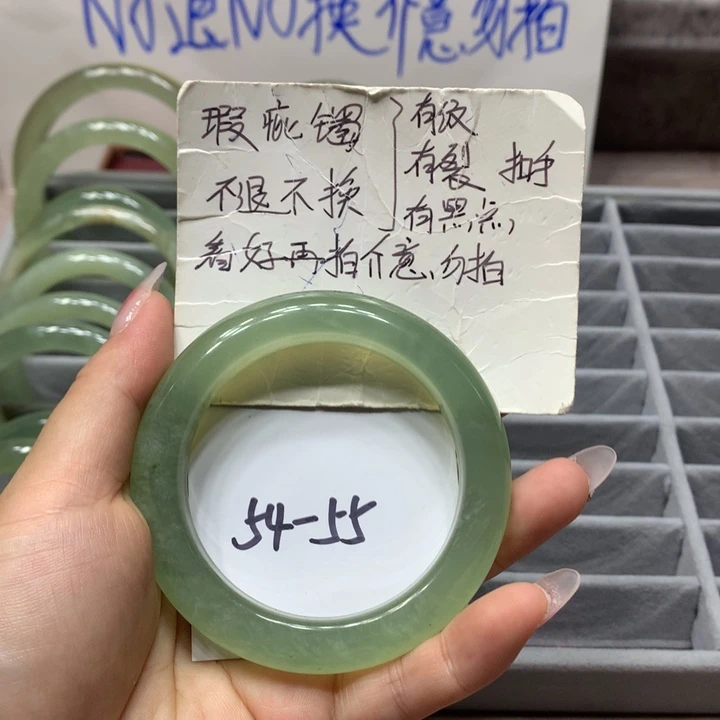 NO退NO换介意勿拍
瑕疵镯
不退不换
有纹
有裂 扣手
有黑点,
看好再拍介意勿拍
54-55